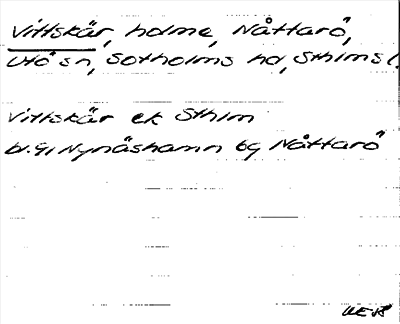 Vittskär, holme, Nåttarö,
Utö sn, Sotholms hd, Sthlms l.
Vittskär ek Sthlm
bl. 91 Nynäshamn bg Nåttarö